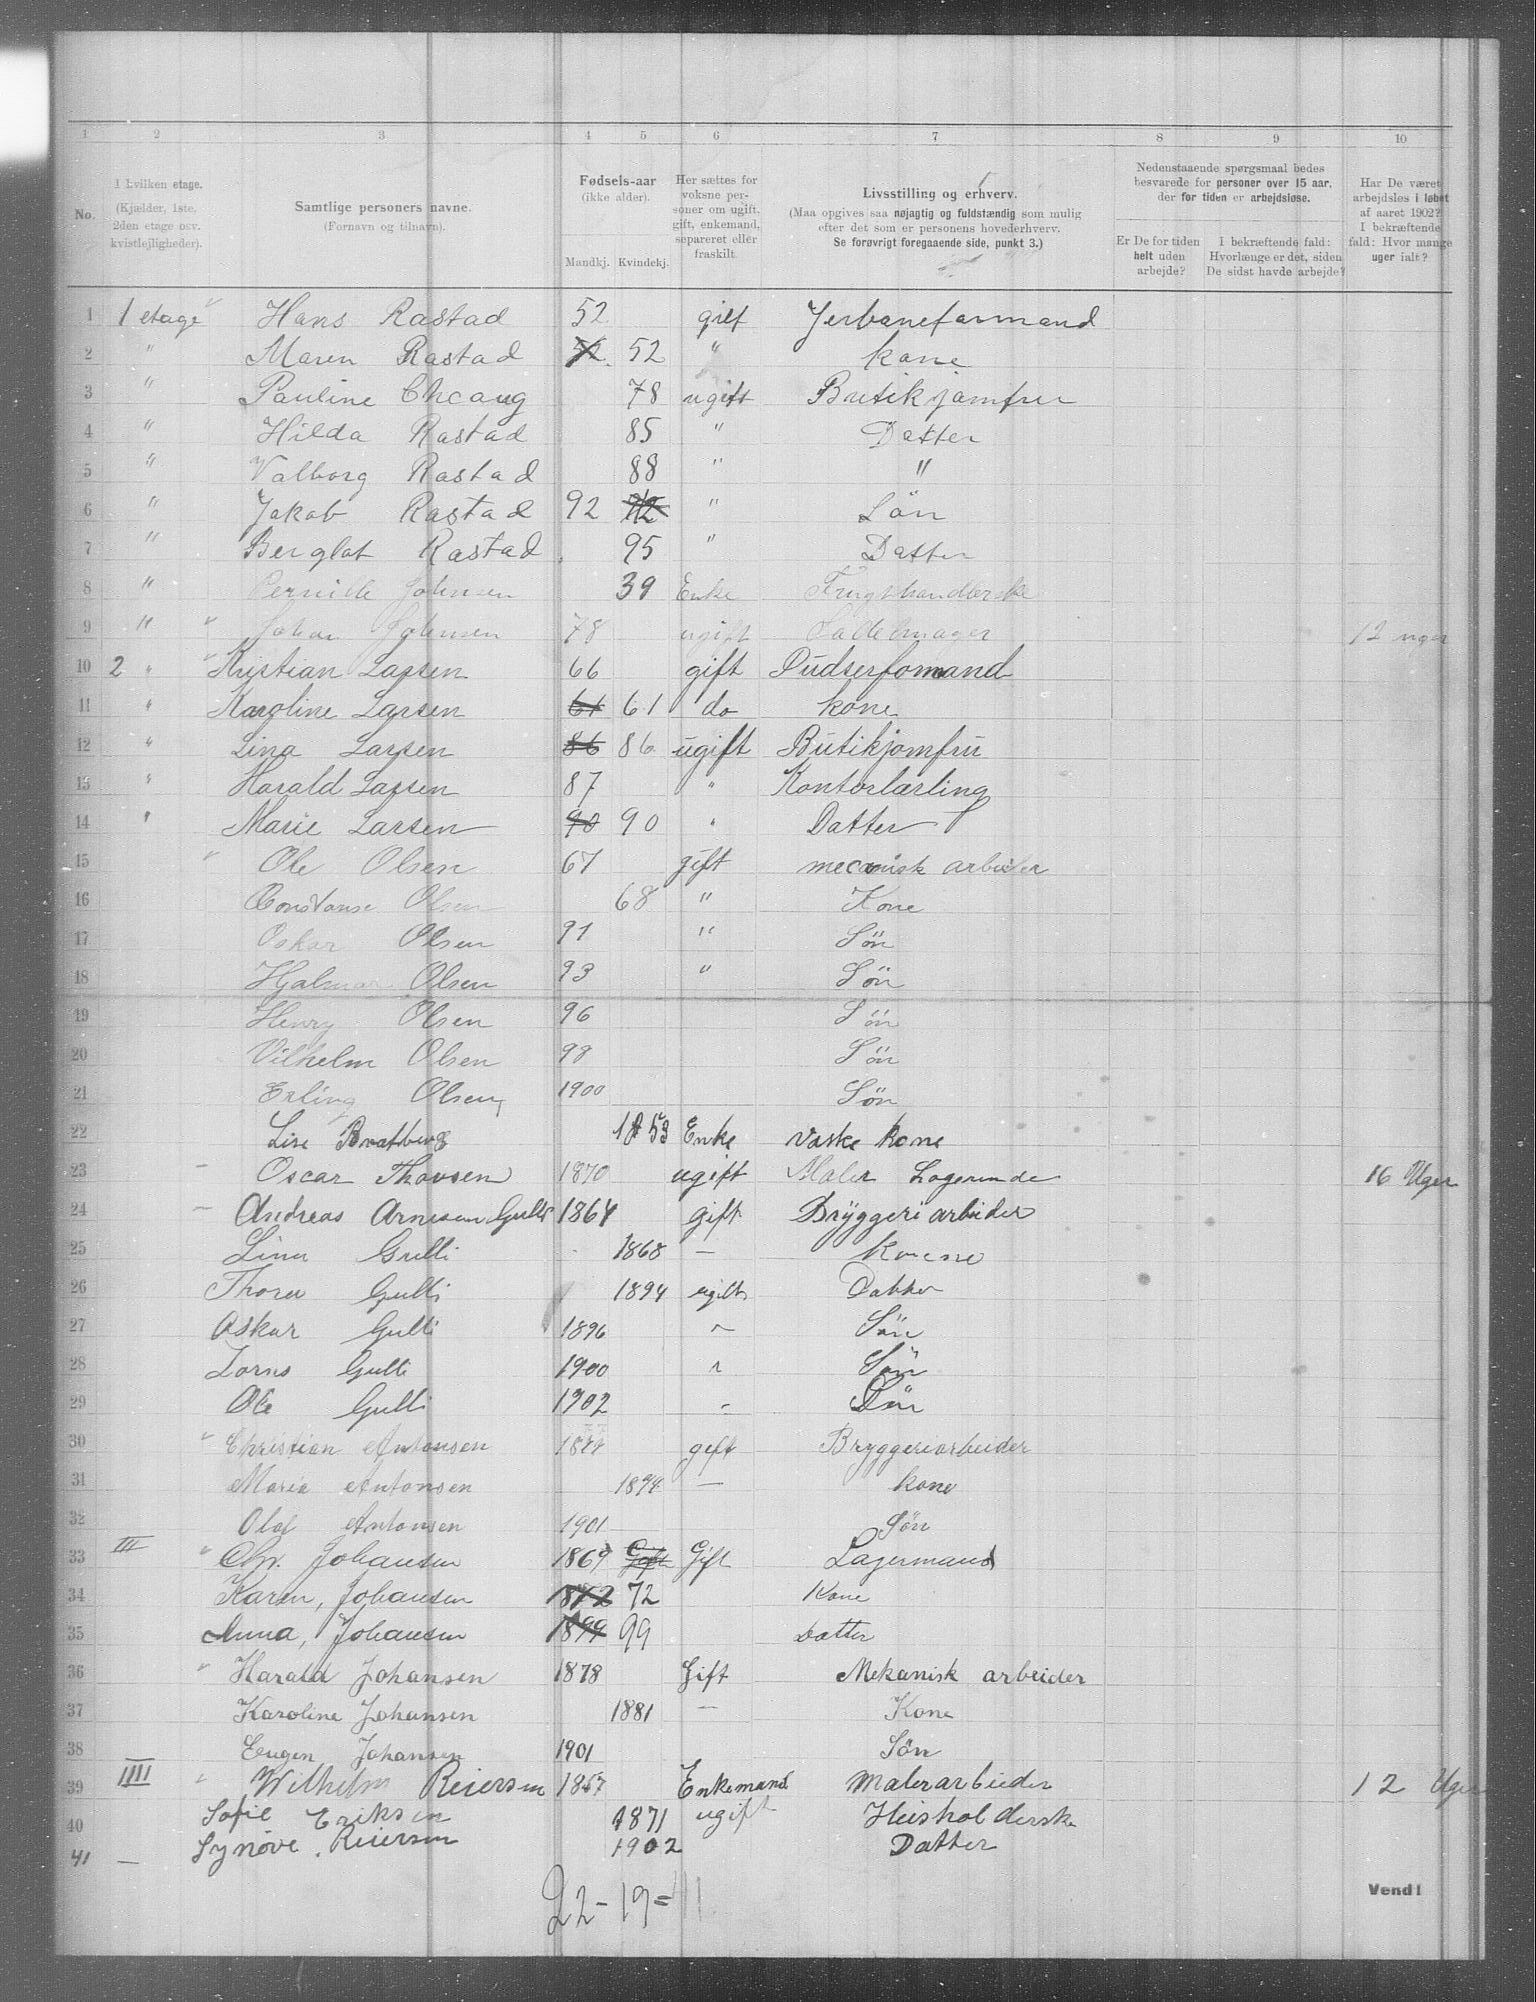 1 2 3 4 5 6 7 8 9 10
No.
I hvilken etage. (Kjælder, 1ste, 2den etage osv. kvistlejligheder).
Samtlige personers navne. (Fornavn og tilnavn).
Fødsels-aar (ikke alder). Mandkj. Kvindekj.
Her sættes for voksne personer om ugift, gift, enkemand, separeret eller fraskilt.
Livsstilling og erhverv. (Maa opgives saa nøjagtig og fuldstændig som mulig efter det som er personens hovederhverv. Se forøvrigt foregaaende side, punkt 3.)
Nedenstaaende spørgsmaal bedes besvarede for personer over 15 aar, der for tiden er arbejdsløse.
Er De for tiden helt uden arbejde?
I bekræftende fald: Hvorlænge er det, siden De sidst havde arbejde?
Har De været arbejdsløs i løbet af aaret 1902? I bekræftende fald: Hvor mange uger ialt?
1 1 etage " Hans Rastad 52 gift Jerbaneformand
2 " Maren Rastad 52 52 " kone
3 " Pauline 78 ugift Butikjomfru
4 " Hilda Rastad 85 " Datter
5 " Valborg Rastad 88 " "
6 " Jakob Rastad 92 92 " Sön
7 " Berglot Rastad 95 " Datter
8 " Pernille Johnsen 39 Enke Frugthandlerske
9 " " Johan Johnsen 78 ugift Sadelmager 12 uger
10 2 " " Kristian Larsen 66 gift Pudserformand
11 " Karoline Larsen 61 61 do kone
12 " Lina Larsen 86 86 ugift Butikjomfru
13 " Harald Larsen 87 " Kontorlærling
14 " Marie Larsen 90 90 " Datter
15 " Ole Olsen 67 gift mecanisk arbeider
16 Constanse Olsen 68 " Kone
17 Oskar Olsen 91 " Sön
18 Hjalmar Olsen 93 " Sön
19 Henry Olsen 96 Sön
20 Vilhelm Olsen 98 Sön
21 Erling Olsen 1900 Sön
22 Lise Bratberg 1853 Enke Vaske kone
23 - Oscar Thovsen 1870 ugift Maler Logerende 16 Uger
24 - Andreas Arnesen Gulli 1864 gift Bryggeri arbeider
25 Lina Gulli 1868 - Kone
26 Thora Gulli 1894 ugift Datter
27 Oskar Gulli 1896 " Sön
28 Gulli 1900 " Sön
29 Ole Gulli 1902 " Sön
30 " Christian Antonsen 1877 gift Bryggeriarbeider
31 Maria Antonsen 1874 - kone
32 Olaf Antonsen 1901 Sön
33 III " Chr. Johansen 1869 Gift Gift Lagermand
34 Karen, Johansen 1872 72 Kone
35 Anna, Johansen 1899 99 Datter
36 " Harald Johansen 1878 Gift Mekanisk arbeider
37 Karoline Johansen 1881 - Kone
38 Eugen Johansen 1901 Sön
39 IIII " Wilhelm Reiersen 1857 Enkemand Malerarbeider 12 Uger
40 Sofie Eriksen 1871 ugift Heisholderske
41 - Synöve Reiersen 1902 Datter
22 - 19 =
Vend!